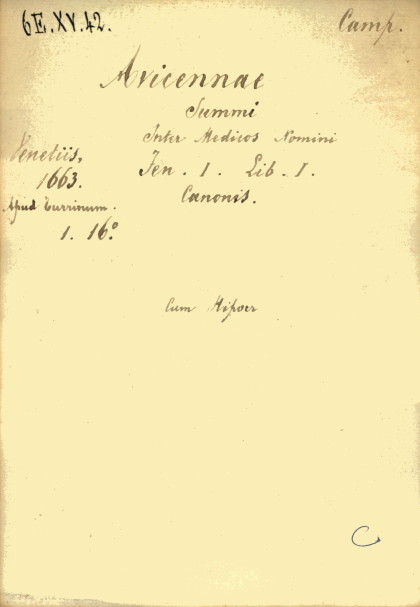 6E.XV.42.
Camp.
Avicennae
Summi
Inter Medicos Nomini
Fen. I. Lib. I.
Canonis.
Venetiis,
1663.
Apud Turrinum.
1. 16º
Cum Hipocr
C